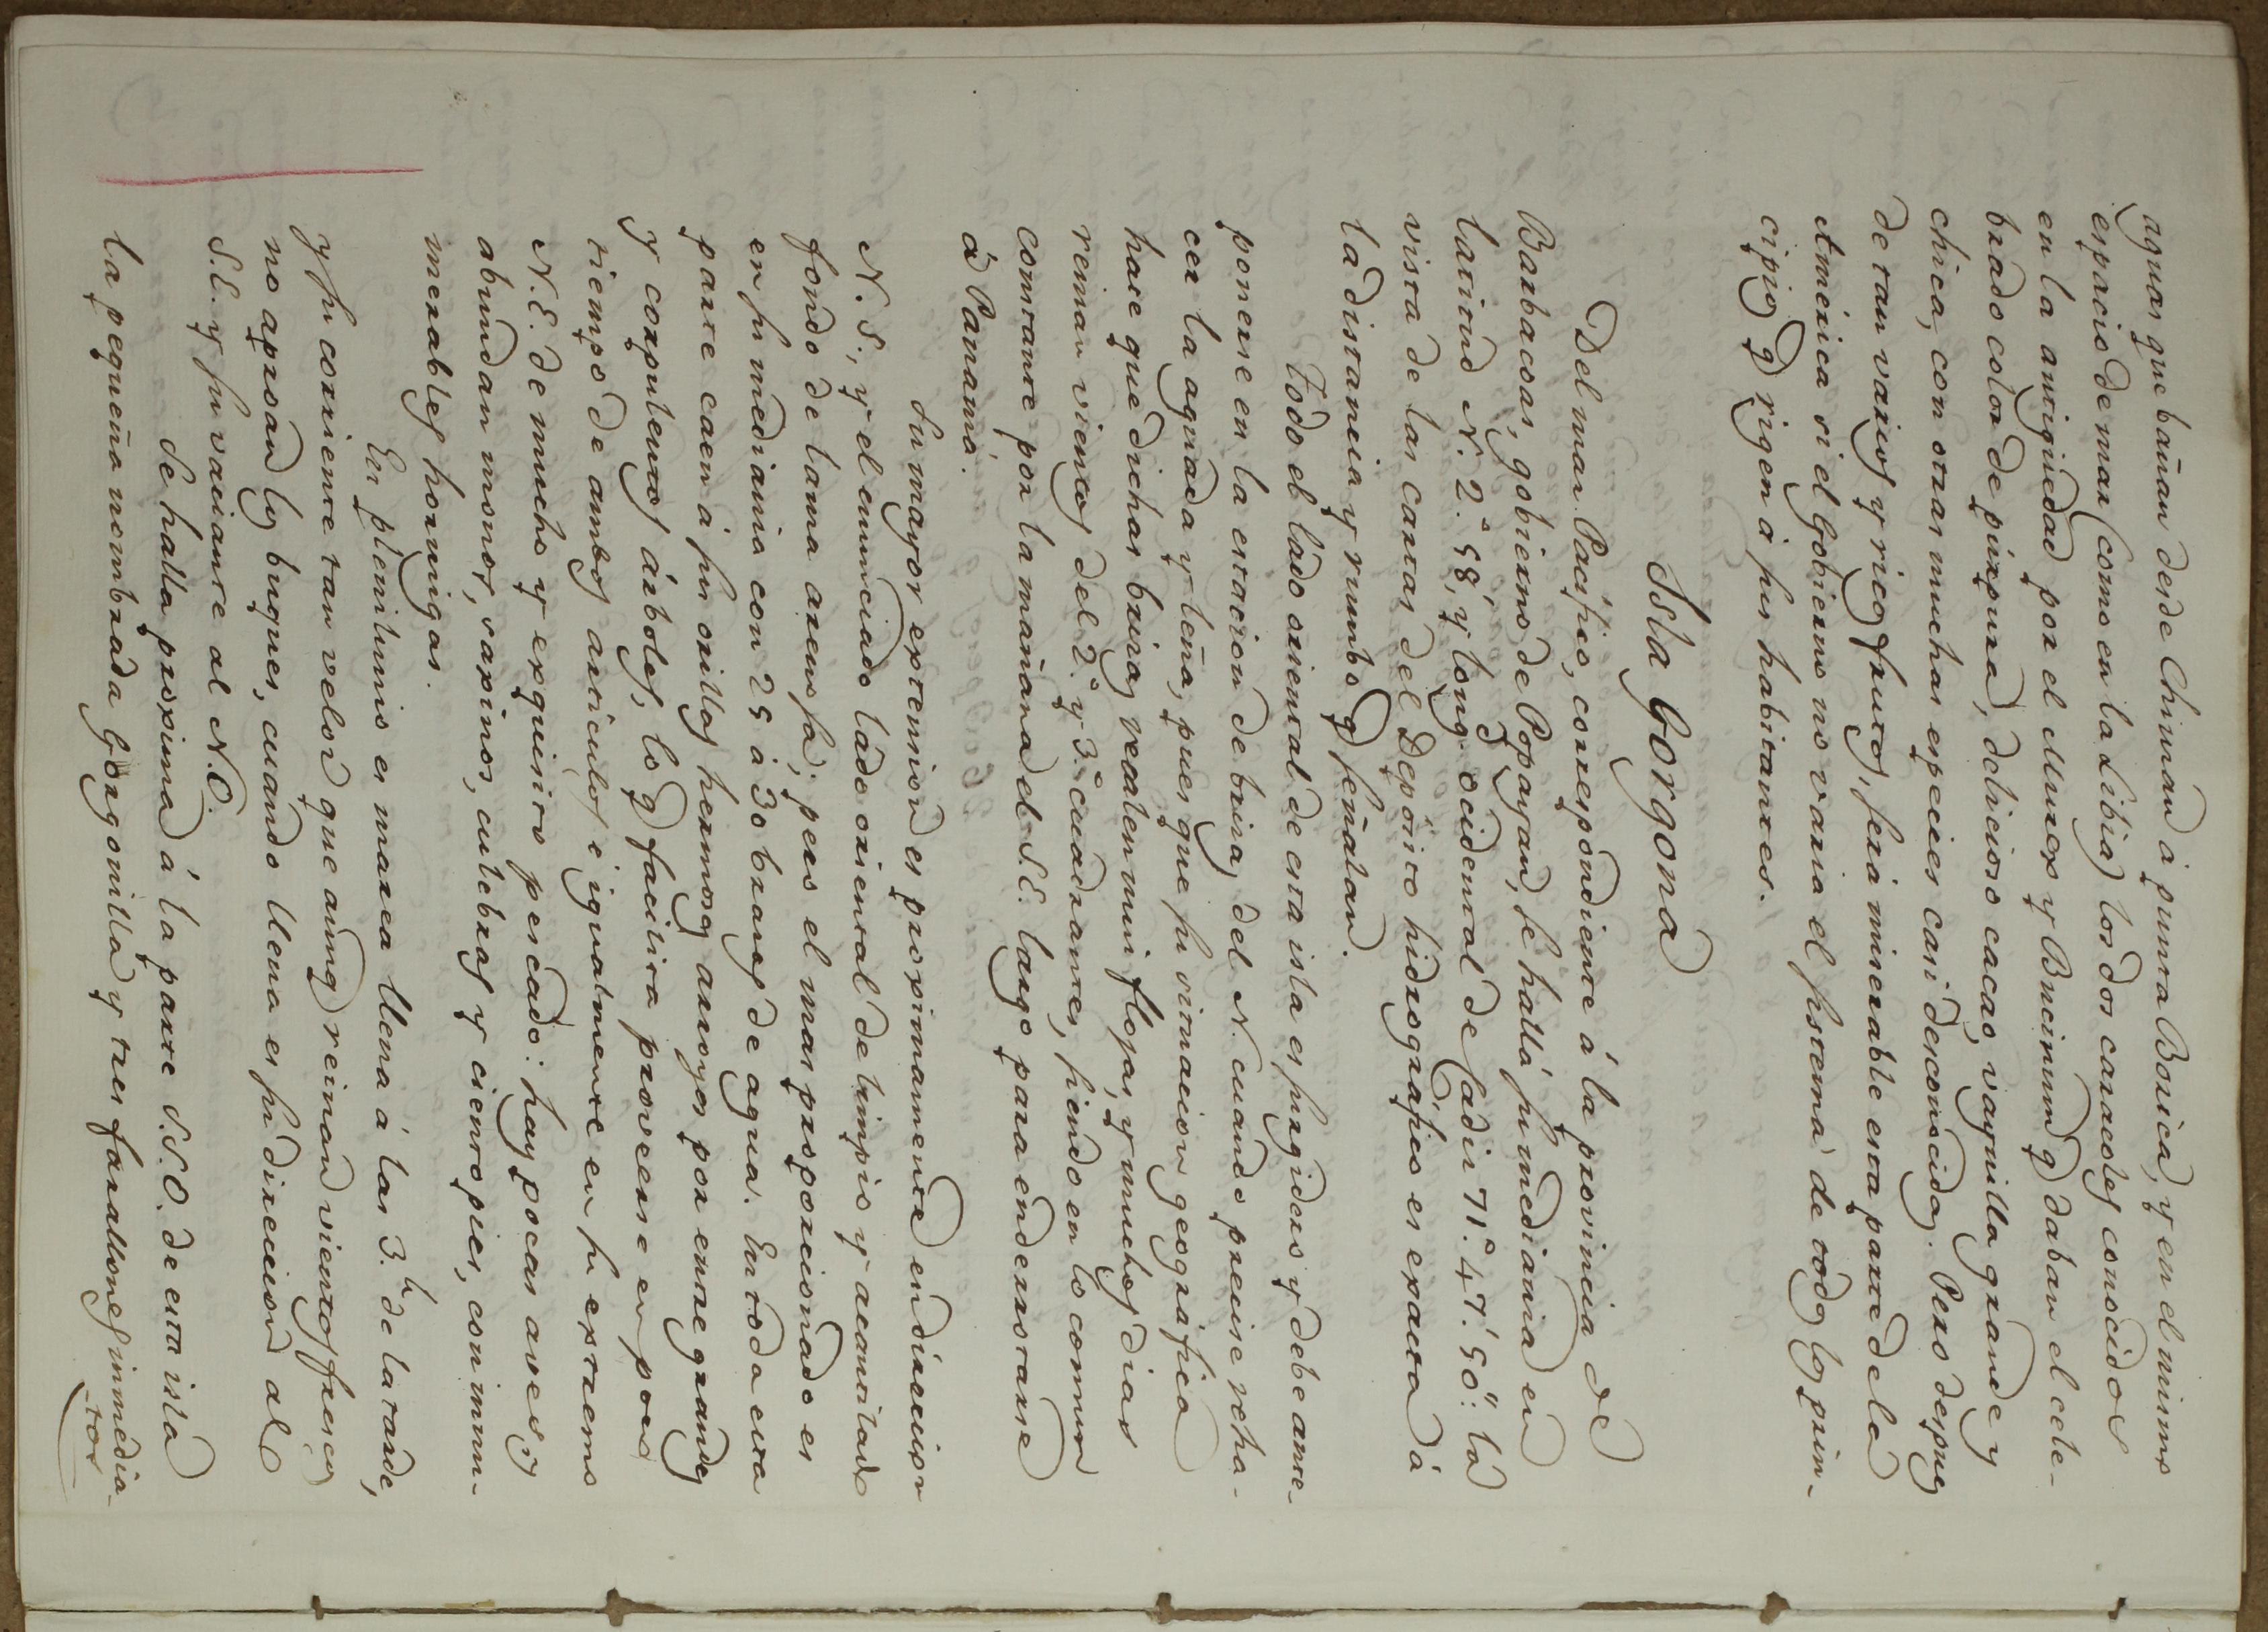 aguas que bañan desde Chiman á punta Borica, y en el mismo
espacio de mar (como en la Libia) los dos caracoles conocidos
en la antigüedad por el Murex y Bucinum q dában el cele-
brado color de púrpura, delicioso cacao, vaynilla grande y
chica, con otras muchas especies casi desconocidas. Pero despues
de tan varios y ricos frutos, será miserable esta parte de la
América si el Gobierno no varía el sistema de todos los prin-
cipios q rigen á sus habitantes.
Isla Gorgona
Del mar Pacífico, correspondiente á la provincia de
Barbacoas, gobierno de Popayan, se halla su mediania en
latitud N. 2.° 58', y long.d ocidental de Cadiz 71.° 47.' 50": la
vista de las cartas del Depósito hidrográfico es exacta á
la distancia y rumbo q señalan.
Todo el ládo oriental de esta isla es surgidero y debe ante-
ponerse en la estacion de brisas del N. cuando precise reha-
cer la aguada y leña, pues que su situacion geográfica
hace que dichas brisas recalen mui flojas, y muchos dias
reinan vientos del 2.° y 3.° cuadrantes, siendo en lo comun
constante por la mañana el S.E. largo para enderrotarse
á Panamá.
Su mayor extension es proximamente en direccion
N. S., y el enunciado ládo oriental de limpio y acantilado
fondo de lama arenosa; pero el mas proporcionado es
en su mediania con 25 á 30 brazas de agua. En toda esta
parte caen á sus orillas hermosos arroyos por entre grandes
y corpulentos árboles, lo q facilita proveerse en poco
tiempo de ambos artículos é igualmente en su extremo
N.E. de mucho y exquisito pescado: hay pocas aves, y
abundan monos, rapinos, culebras y ciento pies, con innu-
merables hormigas.
En plenilunio es marea llena á las 3.h de la tarde,
y su corriente tan veloz que aunq reinan vientos frescos
no aproan los buques, cuando llena es su direccion al
S.E. y su vaciante al N.O.
Se halla proxima á la parte S.S.O. de esta isla
la pequeña nombrada Gorgonilla y tres farallones inmedia-
tos